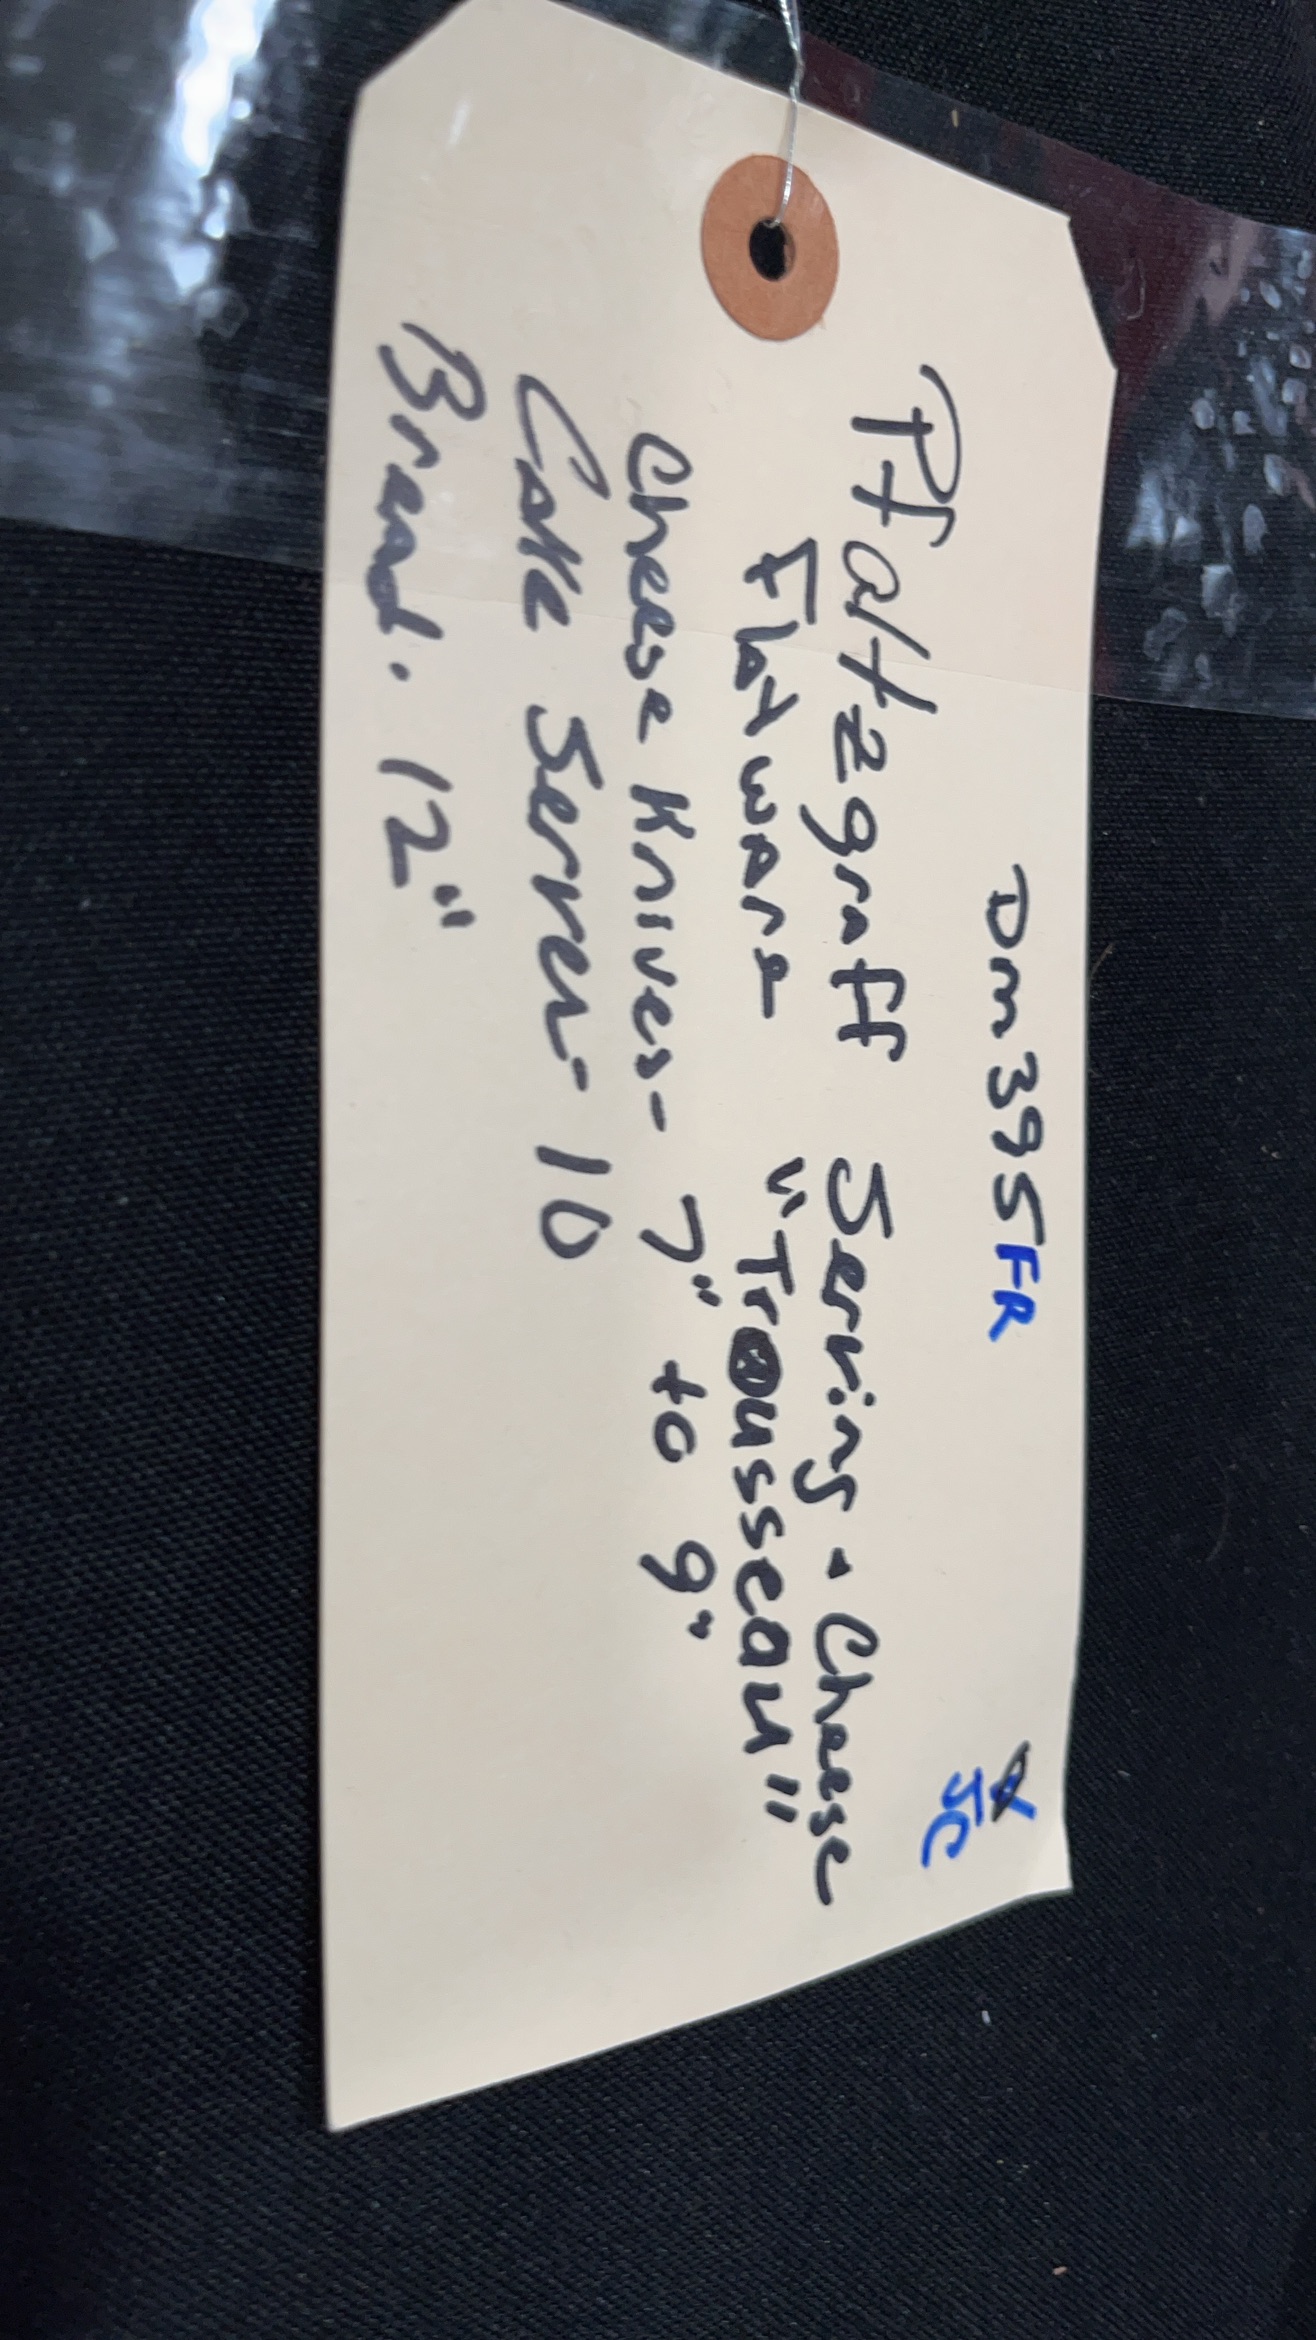 Dm395FR
JC
Pfaltzgraff Serving • Cheese
Flatware "Trousseau"
Cheese Knives - 7" to 9"
Cake Server - 10
Bread. 12"